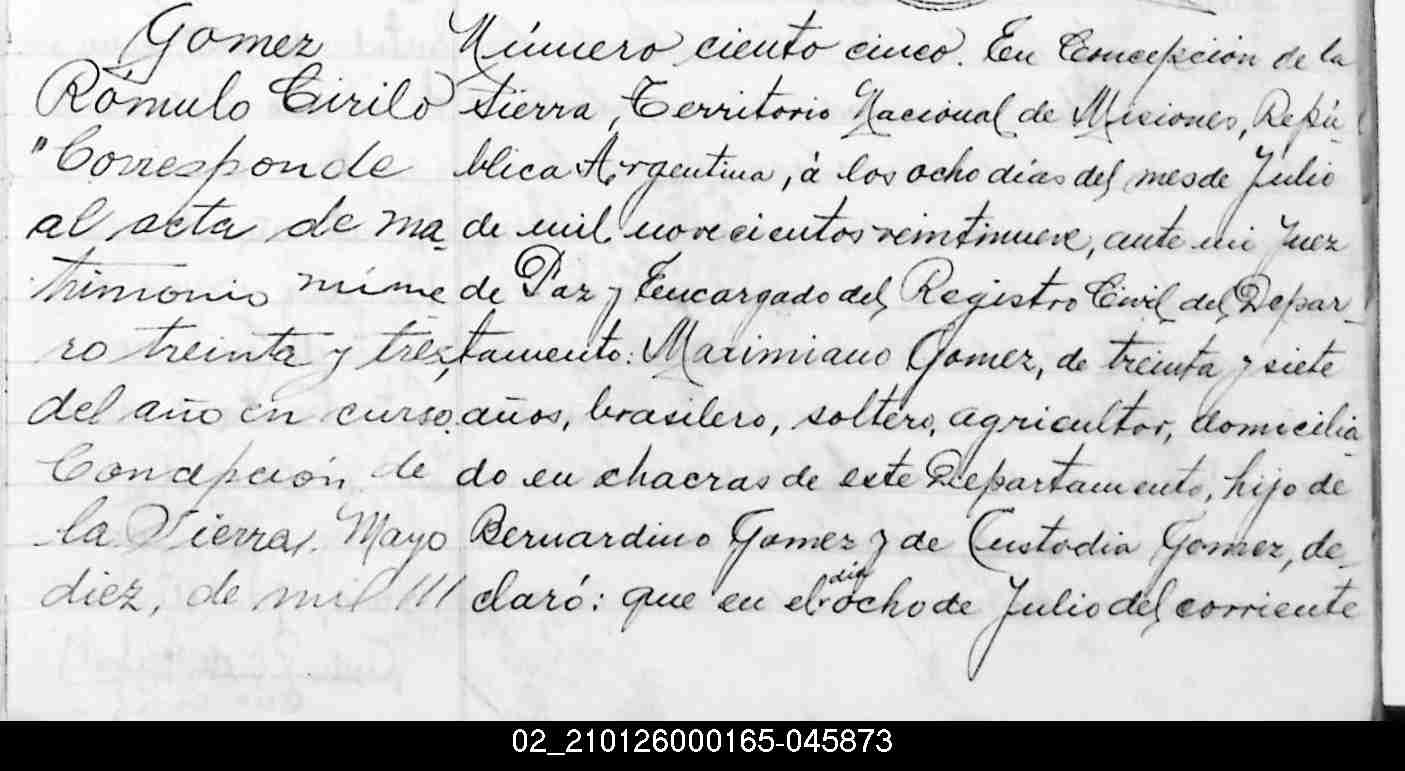 Gomez
Rómulo Cirilo
"Corresponde
al acta de ma-
trimonio núme
ro treinta y tres,
del año en curso.
Concepción de
la Sierra, Mayo
diez, de mil ///
Número ciento cinco. En Concepción de la
Sierra, Territorio Nacional de Misiones, Repú-
blica Argentina, á los ocho dias del mes de Julio
de mil novecientos veintinueve, ante mi Juez
de Paz y Encargado del Registro Civil del Depar-
tamento: Maximiano Gomez, de treinta y siete
años, brasilero, soltero, agricultor, domicilia-
do en chacras de este Departamento, hijo de
Bernardino Gomez y de Custodia Gomez, de-
claró: que en el dia ocho de Julio del corriente
02_210126000165-045873